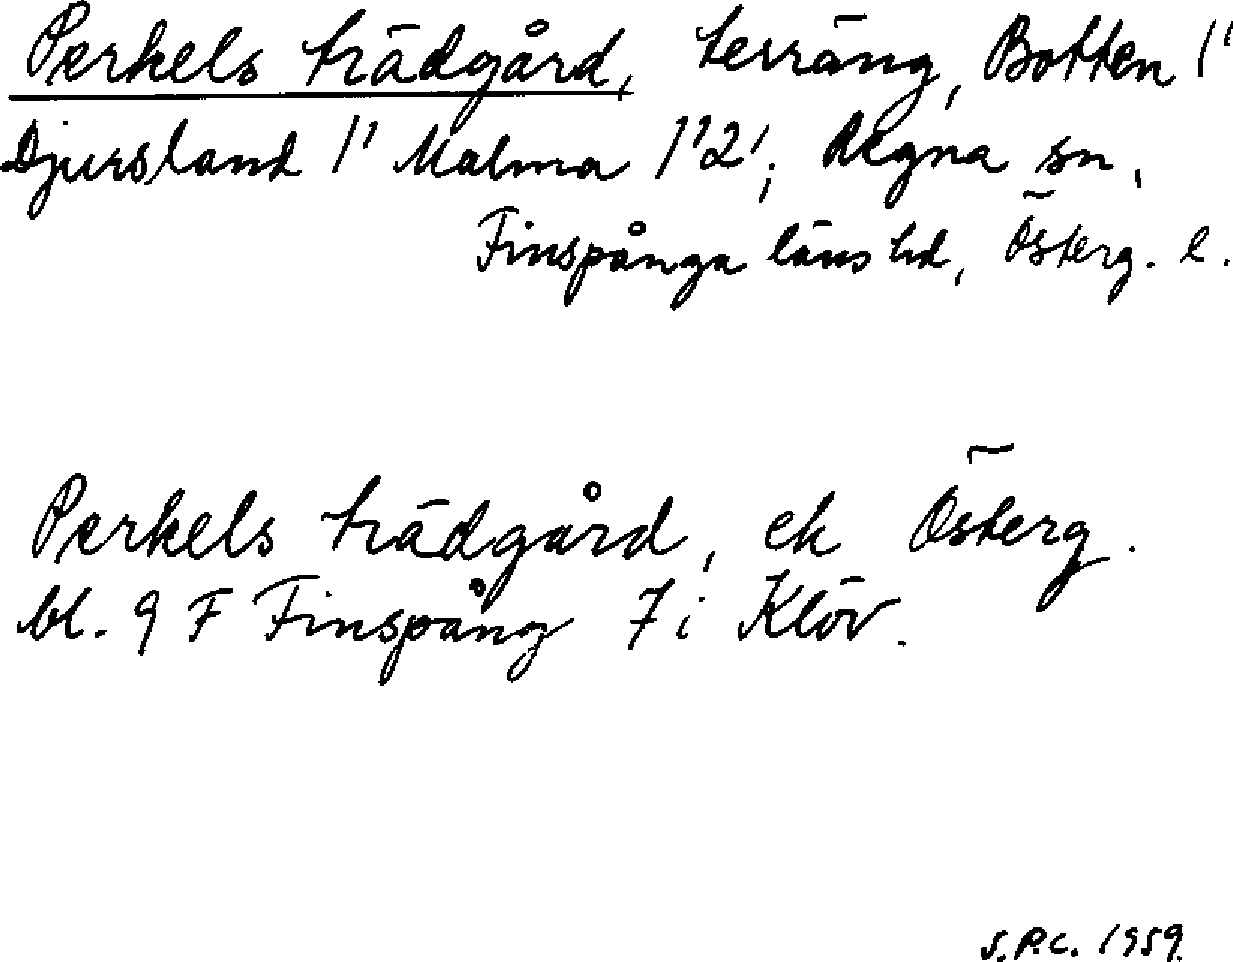 Perkels trädgård, terräng, Botten 1'
Djursland 1' Malma 1'2'; Regna sn,
Finspånga läns hd, Österg. l.
Perkels trädgård, ek Österg.
bl. 9 F Finspång 7 i Klöv.
S.P.C. 1959.